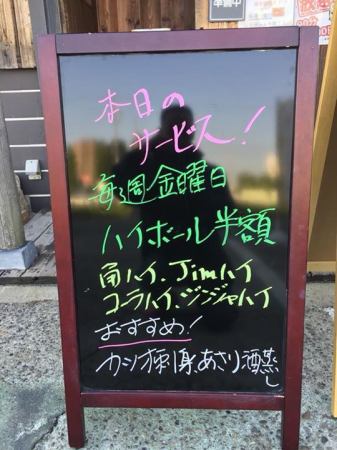 本日の
サービス!
毎週金曜日
ハイボール半額
角ハイ、Jimハイ
コーラハイ、ジンジャハイ
おすすめ!
カツオ刺身、あさり酒蒸し